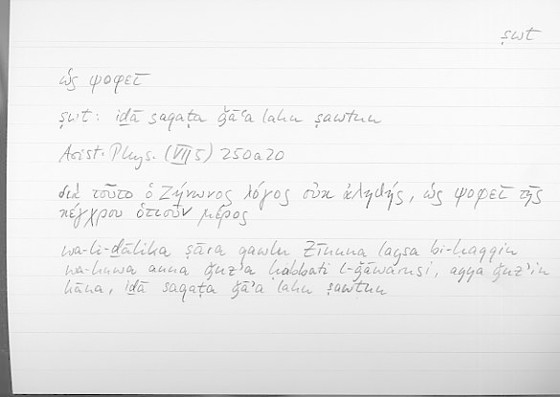 ṣwt
ὡς ψοφεῖ
ṣwt: iḏā saqaṭa ǧāʾa lahu ṣawtun
Arist. Phys. (VII 5) 250a20
διὰ τοῦτο ὁ Ζήνωνος λόγος οὐκ ἀληθής, ὡς ψοφεῖ τῆς
κέγχρου ὁτιοῦν μέρος
wa-li-ḏālika ṣāra qawlu Zīnuna laysa bi-ḥaqqin
wa-huwa anna ǧuzʾa ḥabbati l-ǧāwarusi, ayya ǧuzʾin
kāna, iḏā saqaṭa ǧāʾa lahu ṣawtun